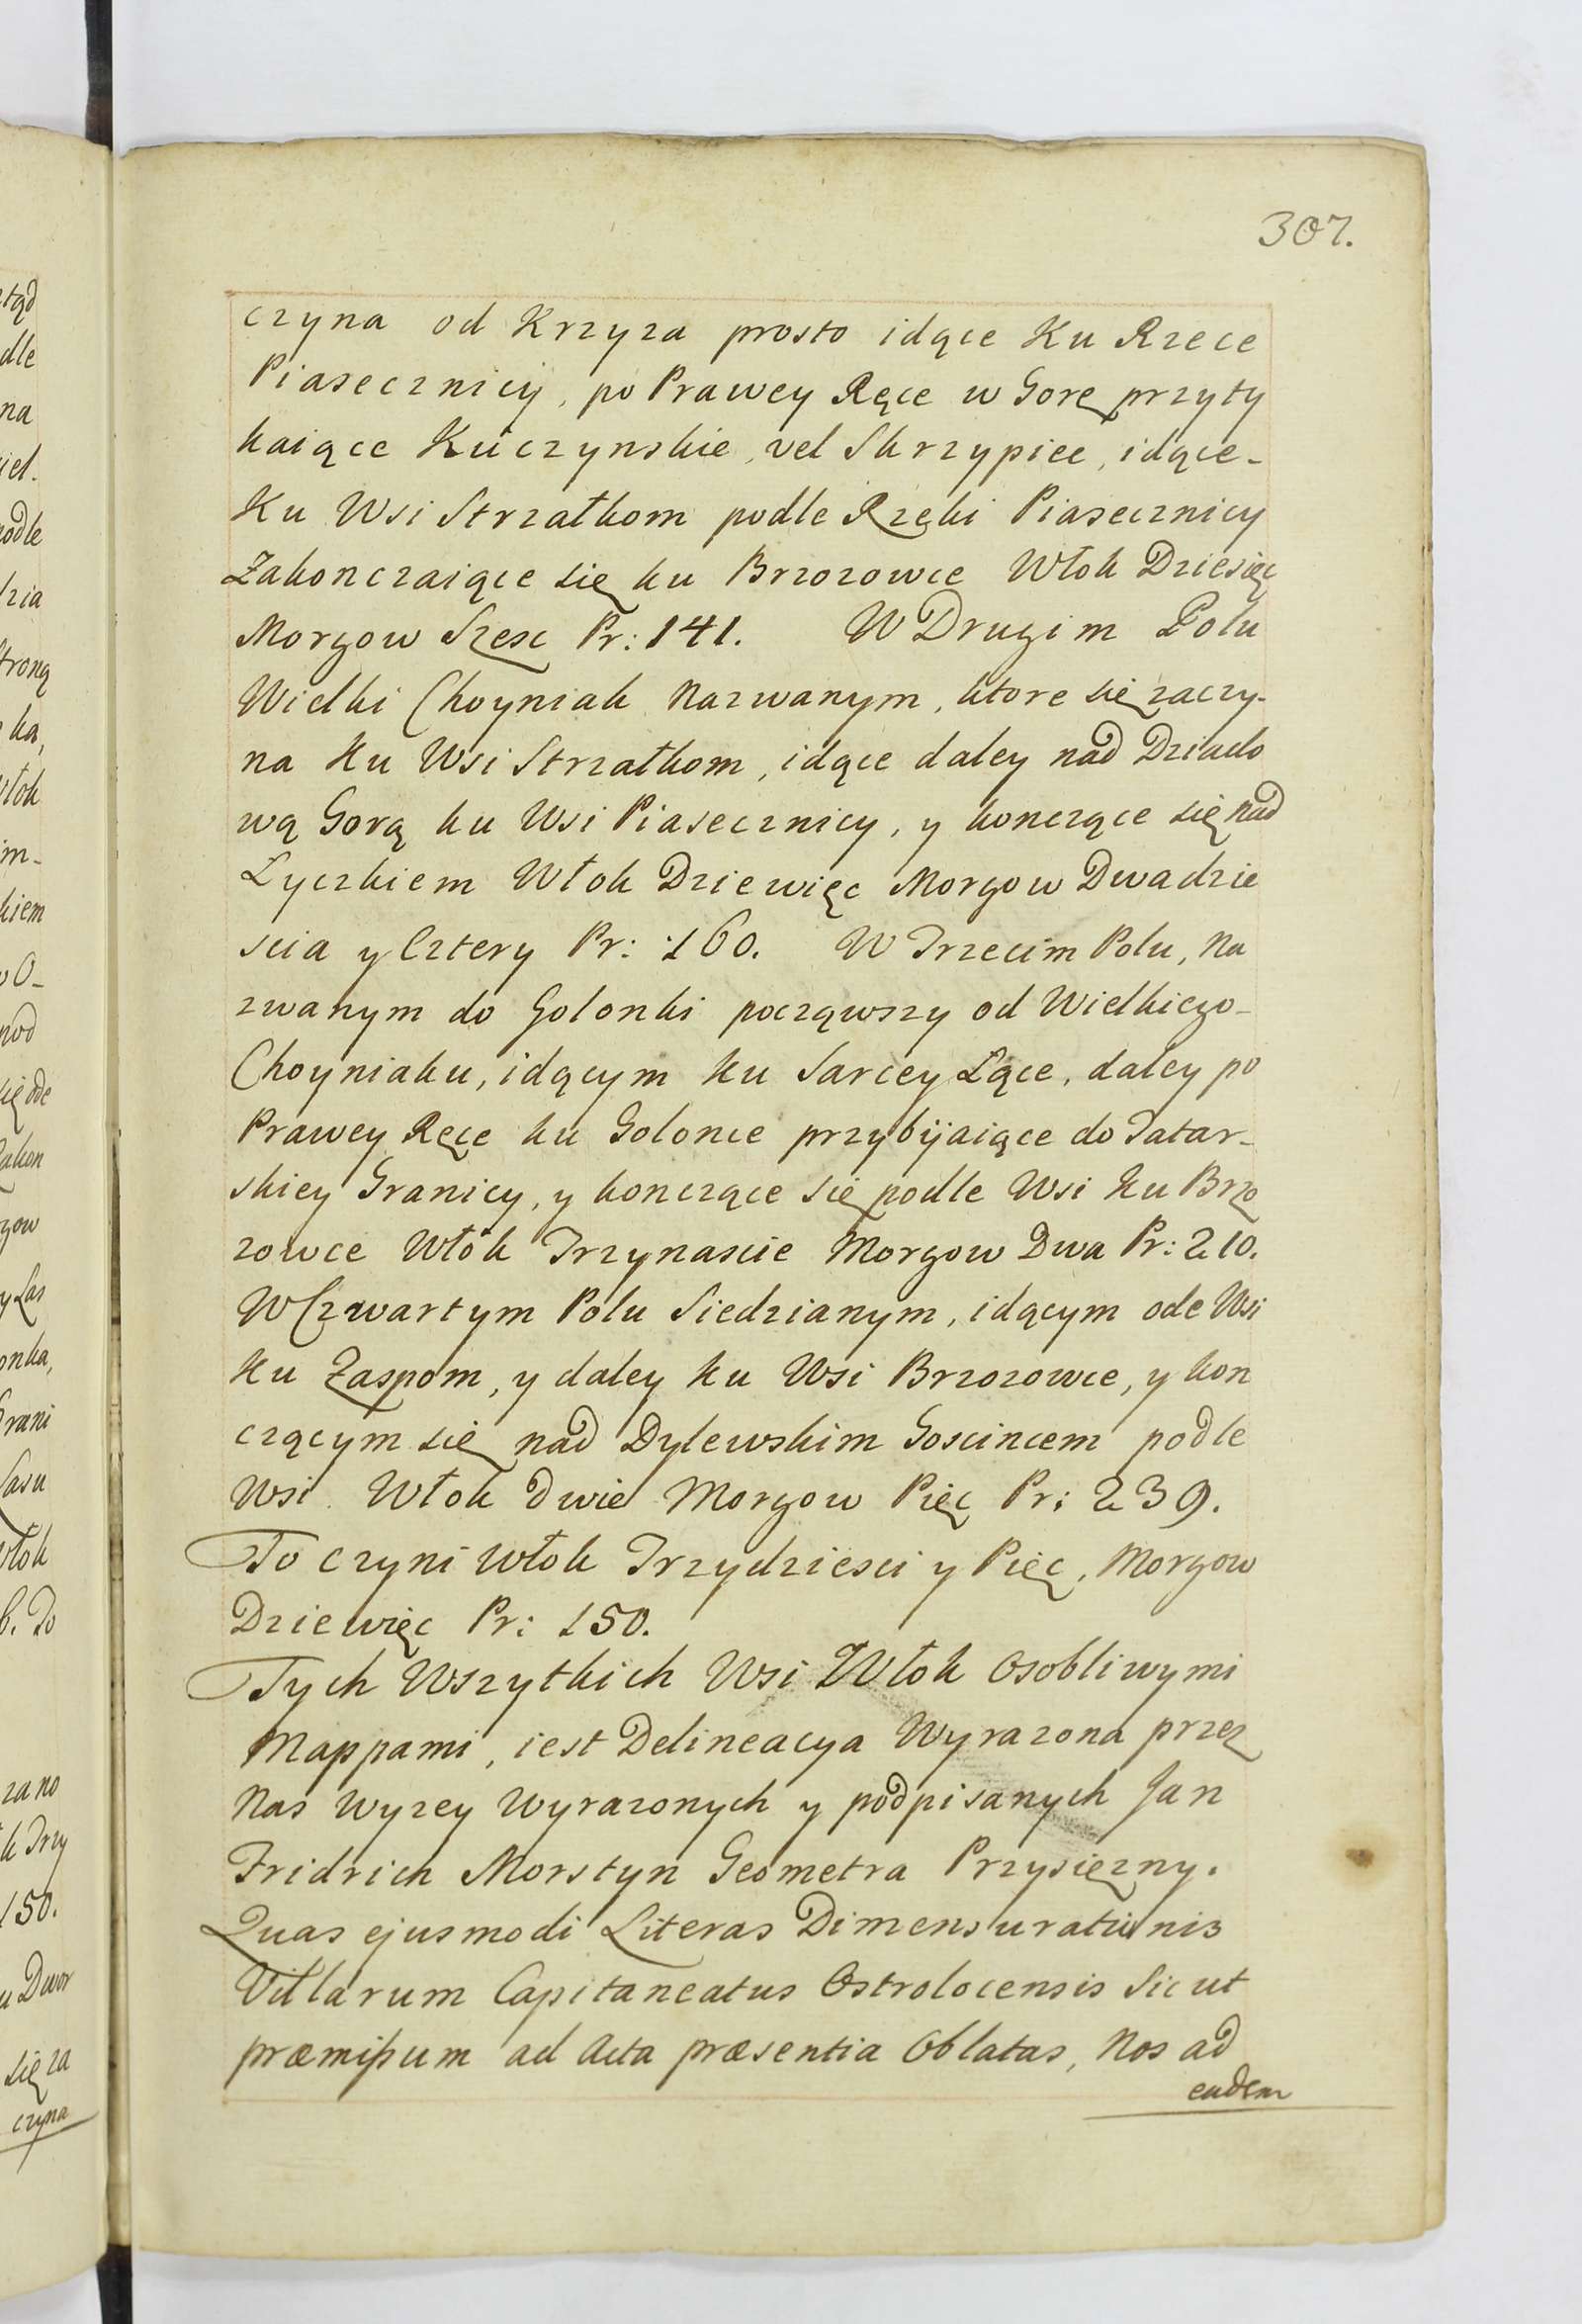 307.
czyna od Krzyza prosto idące Ku Rzece
Piasecznicy, po Prawey Ręce w Gorę przyty
kaiące Kuczynskie, vel Skrzypiec, idące-
Ku Wsi Strzałkom podle Rzęki Piasecznicy
Zakonczaiące się ku Brzozowce Włok Dziesięc
Morgow Szesc Pr: 141. W Drugim Polu
Wielki Choyniak Nazwanym, ktore się zaczy-
na Ku Wsi Strzałkom, idące daley nad Dziado
wą Gorą ku Wsi Piasecznicy, y konczące się nad
Łyczkiem Włok Dziewięc Morgow Dwadzie
scia y Cztery Pr: 160. W Trzecim Polu, Na
zwanym do Golonki począwszy od Wielkiego-
Choyniaku, idącym ku Sarcey Łące, daley po
Prawey Ręce ku Golonce przybijaiące do Tatar-
skiey Granicy, y konczące się podle Wsi Ku Brzo
zowce Włok Trzynascie Morgow Dwa Pr: 210.
W Czwartym Polu Siedzianym, idącym ode Wsi
Ku Zaspom, y daley ku Wsi Brzozowce, y kon
czącym się nad Dylewskim Goscincem podle
Wsi. Włok Dwie Morgow Pięc Pr: 239.
To czyni Włok Trzydziesci y Pięc, Morgow
Dziewięc Pr: 150.
Tych Wszytkich Wsi Włok Osobliwymi
Mappami, iest Delineacya Wyrazona przez
Nas Wyzey Wyrazonych y podpisanych Jan
Fridrich Morstyn Geometra Przysięzny.
Quas ejusmodi Literas Dimensurationis
Villarum Capitaneatus Ostrolocensis Sicut
præmißum ad Acta præsentia Oblatas, Nos ad
eadem
tąd
dle
na
iel.
podle
dzia
Stroną
ka,
włok
im-
kiem
O-
pod
się ode
Zakon
gow
y Las
onka,
Grani
Lasu
włok
6. To
zano
k Trzy
150.
u Dwor
się za
czyna